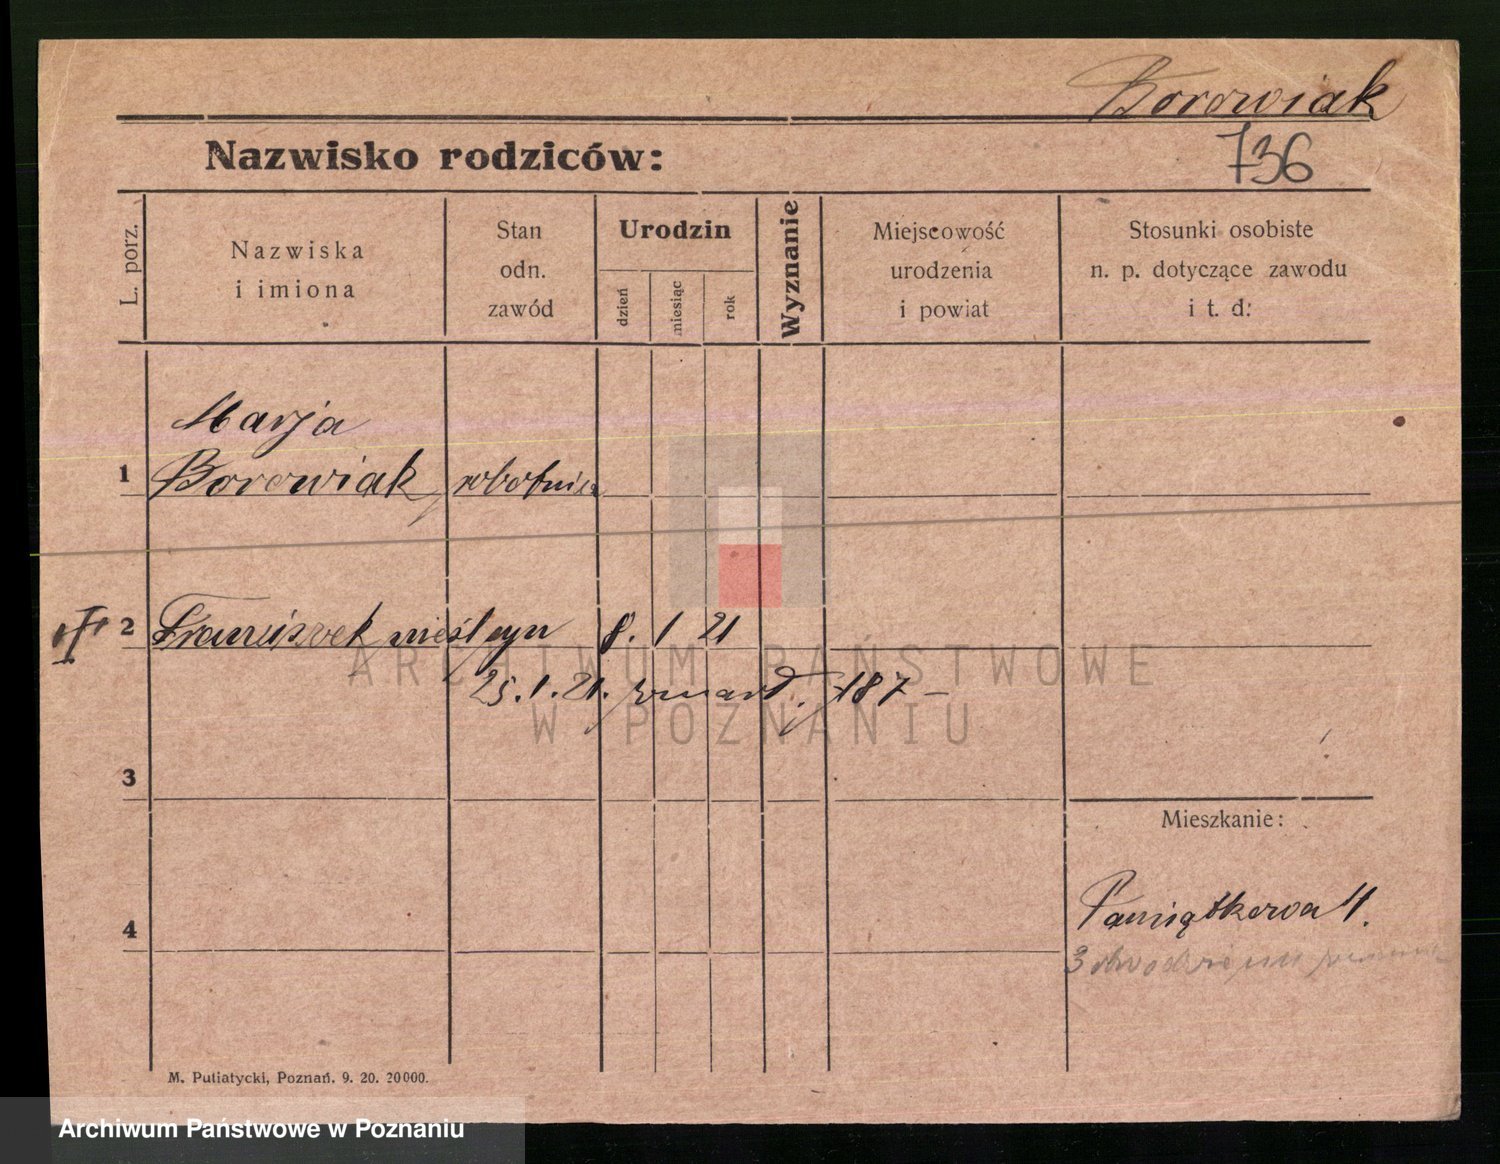 Borowiak
736
Nazwisko rodziców:
L. porz.
Nazwiska
i imiona
Stan
odn.
zawód
Urodzin
dzień
miesiąc
rok
Wyznanie
Miejscowość
urodzenia
i powiat
Stosunki osobiste
n. p. dotyczące zawodu
i t. d.
Marja
1 Borowiak robotnica
2 Franciszek nieśl. syn 8. 1 21
25. 1. 21. zmarł. 187 –
3
Mieszkanie:
4
Pamiątkowa 11.
3
M. Putiatycki, Poznań. 9. 20. 20000.
ARCHIWUM PAŃSTWOWE
W POZNANIU
Archiwum Państwowe w Poznaniu